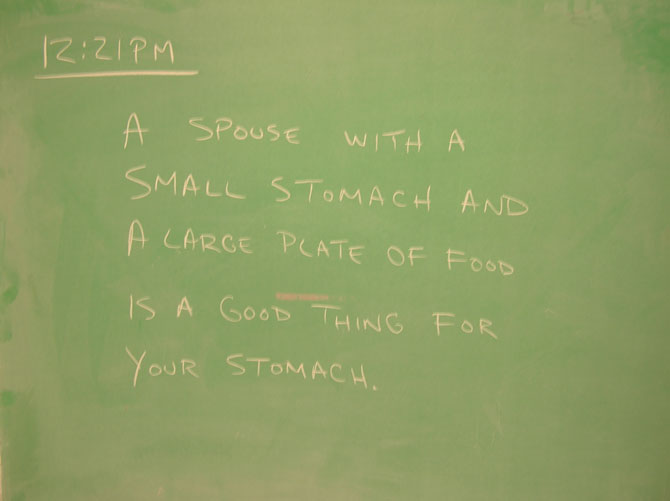 12:21PM
A SPOUSE WITH A
SMALL STOMACH AND
A LARGE PLATE OF FOOD
IS A GOOD THING FOR
YOUR STOMACH.